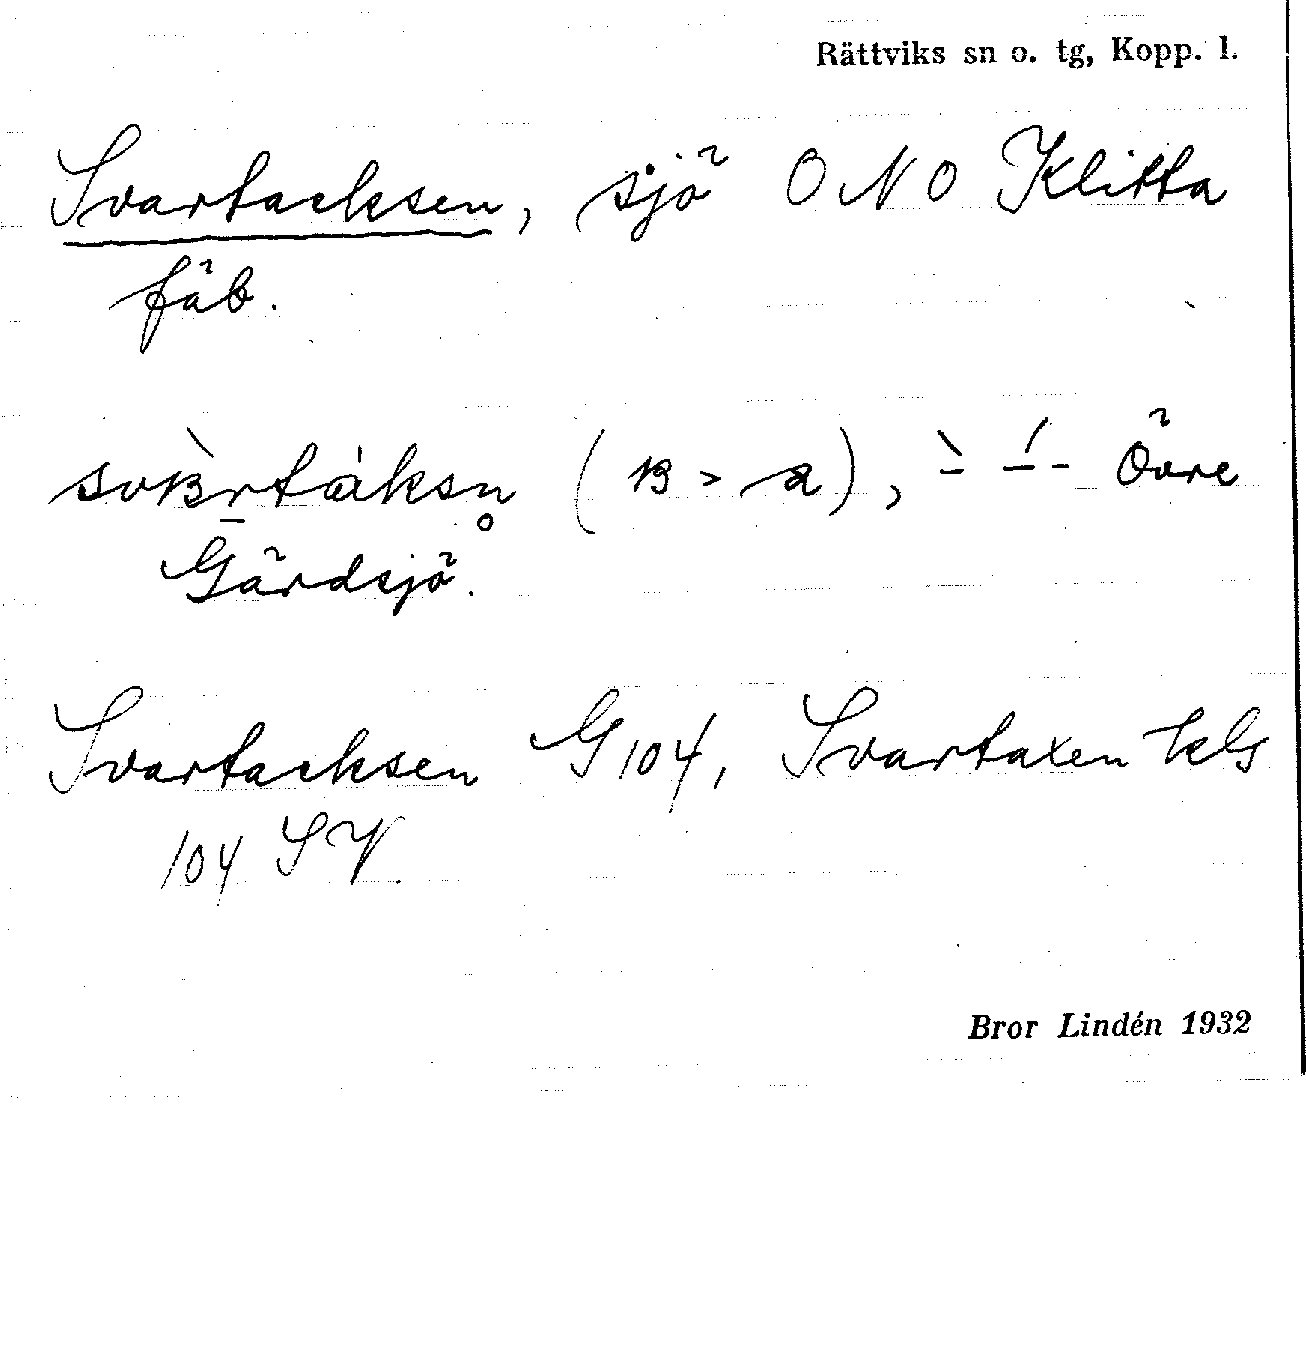 Rättviks sn o. tg, Kopp. l.
Svartacksen, sjö ONO Klitta
fäb.
Övre
Gärdsjö.
Svartacksen G 104, Svartaxen kls
104 SV.
Bror Lindén 1932